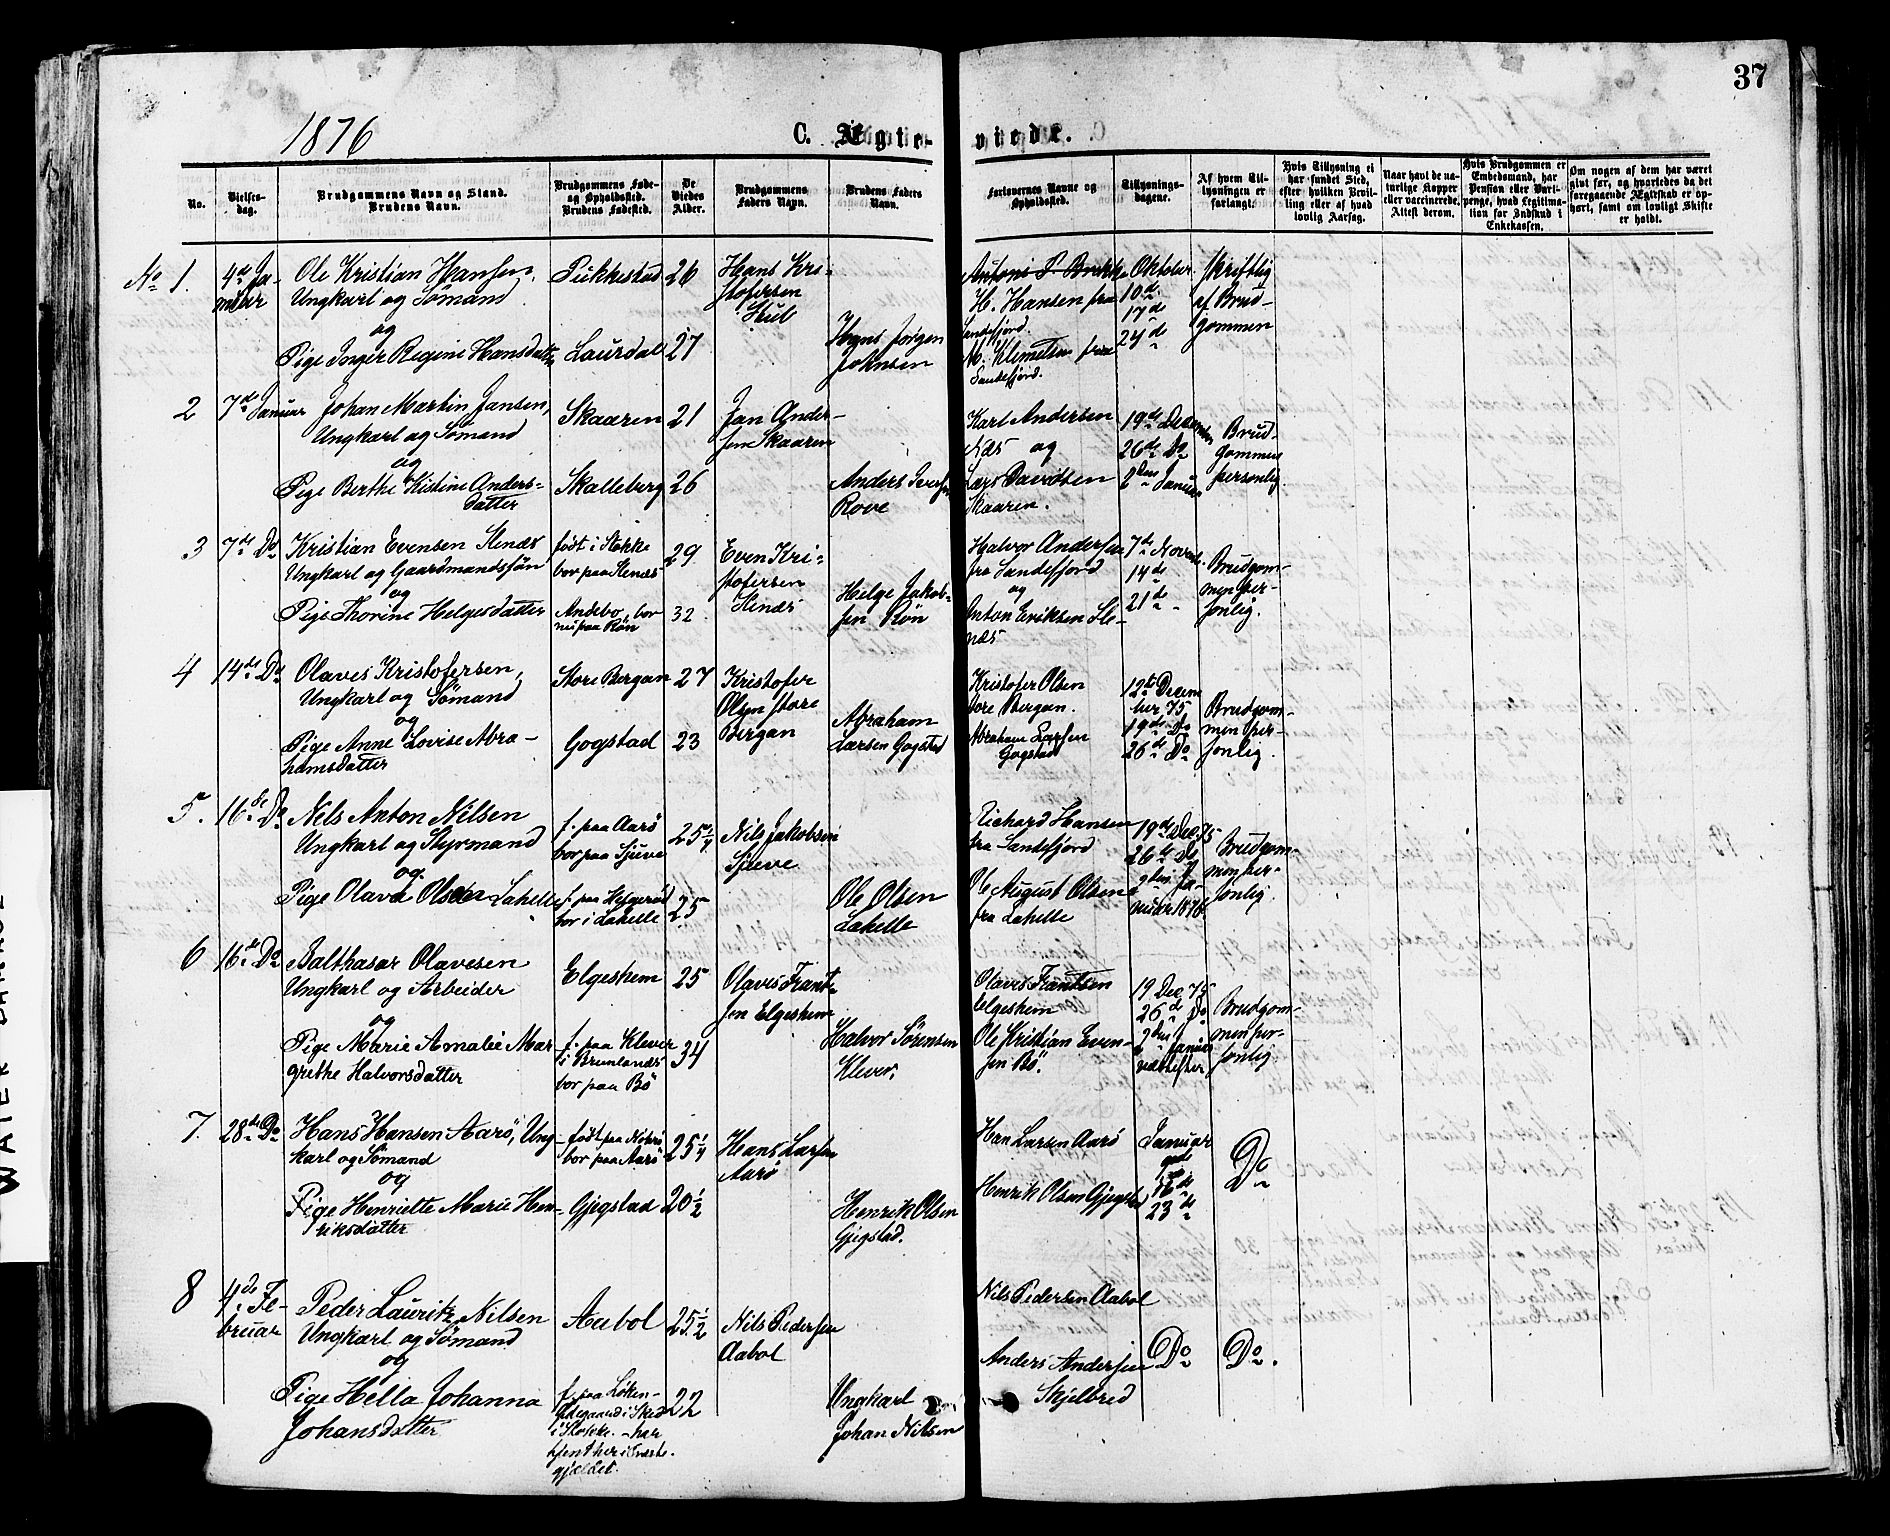 37
1876
C. Ægte-
viede.
No.
Vielses-
dag.
Brudgommens Navn og Stand.
Brudens Navn.
Brudgommens Føde-
og Opholdssted.
Brudens Fødested.
De
Viedes
Alder.
Brudgommens
Faders Navn.
Brudens Faders
Navn.
Forlovernes Navne og
Opholdssted.
Tillysnings-
dagene.
Af hvem Til-
lysningen er
forlangt.
Hvis Tillysning ei
har fundet Sted,
efter hvilken Bevil-
ling eller af hvad
lovlig Aarsag.
Naar havt de na-
turlige Kopper
eller vaccinerede.
Attest derom.
Hvis Brudgommen er
Embedsmand, har
Pension eller Vart-
penge, hvad Legitima-
tion for Indskud i
Enkekassen.
Om nogen af dem har været
givt før, og hvorledes da det
foregaaende Ægteskab er op-
hørt, samt om lovligt Skifte
er holdt.
No 1.
4de Ja-
nuar
Ole Kristian Hansen,
Ungkarl og Sømand
og
Pige Inger Regine Hansdatter
Pukkestad
Laurdal
26
27
Hans Kri-
stofersen
Hans Jørgen
Johnsen
H. Hansen fra
Sandefjord.
M. Klemetsen fra
Sandefjord.
Oktober
10de
17de
24de
skriftlig
af Brud-
gommen
2
7de Januar
Johan Martin Jansen,
Ungkarl og Sømand
og
Pige Berthe Kistine Anders-
datter
Skaaren
Skalleberg
21
26
Jan Ander-
sen Skaaren
Anders Iversen
Rove
Karl Andersen
Næs og
Lars Davidsen
Skaaren.
19de December
26de Do
2den Januar
Brud-
gommen
personlig
3
7de Do
Kristian Evensen Stenæs
Ungkarl og Gaardmandssøn
og
Pige Thorine Helgesdatter
født i Stokke
bor paa Stenæs
Andebo, bor
nu paa Røn
29
32
Even Kri-
stofersen
Stenæs
Helge Jakob-
sen Røn
Halvor Andersen
fra Sandefjord
og
Anton Eriksen Ste-
næs
7de Novbr.
14de
21de "
Brudgom-
men per-
sonlig.
4
14de Do
Olaves Kristofersen,
Ungkarl og Sømand
og
Pige Anne Lovise Abra-
hamsdatter
Store Bergan
Gogstad
27
23
Kristofer
Olsen store
Bergan
Abraham
Larsen Gogstad
Kristofer Olsen
store Bergan.
Abraham Larsen
Gogstad
12te Decem
ber 75
19de Do
26de Do
Brudgom-
men per-
sonlig.
5.
16de Do
Nels Anton Nilsen
Ungkarl og Styrmand
og
Pige Olava Olsen Lahelle
f. paa Aarø
bor paa Sjuve
bor i Lahelle
25 1/4
25
Nils Jakobsen
Sjueve
Ole Olsen
Lahelle
Richard Hansen
fra Sandefjord
Ole August Olsen
fra Lahelle
19de Dec. 75
26de Do
2den Ja-
nuar 1876
Brudgom-
men per-
sonlig.
6
16de Do
Balthasar Olavesen
Ungkarl og Arbeider
og
Pige Marie Amalie Mar
grethe Halvorsdatter
Elgeshem
f. paa Klever
i Brunlanæs
bor paa Bø
25
34
Olaves Frant-
sen Elgeshem
Halvor Sørensen
Klever.
Olaves Frantsen
Elgeshem
Ole Kristian Even-
sen Bø.
19 Dec. 75
26de Do
2den Januar
Brudgom-
men per-
sonlig
7.
28de Do
Hans Hansen Aarø, Ung-
karl og Sømand
og
Pige Henriette Marie Hen-
riksdatter
bor paa Aarø
Gjegstad
25 1/4
20 1/2
Hans Larsen
Aarø
Henrik Olsen
Gjegstad.
Han Larsen Aarø
Henrik Olsen Gjegstad
Januar
16de
23de
Do
8
4de Fe-
bruar
Peder Lauritz Nilsen
Ungkarl og Sømand
og
Pige Hella Johanna
Johansdatter
Aabol
i Stokke. - har
tjent her i Præste-
gjældet.
25 1/2
22
Nils Pedersen
Aabol
Ungkarl
Johan Nilsen
Nils Pedersen Aabol
Anders Andersen
Skjelbred
Do
Do.